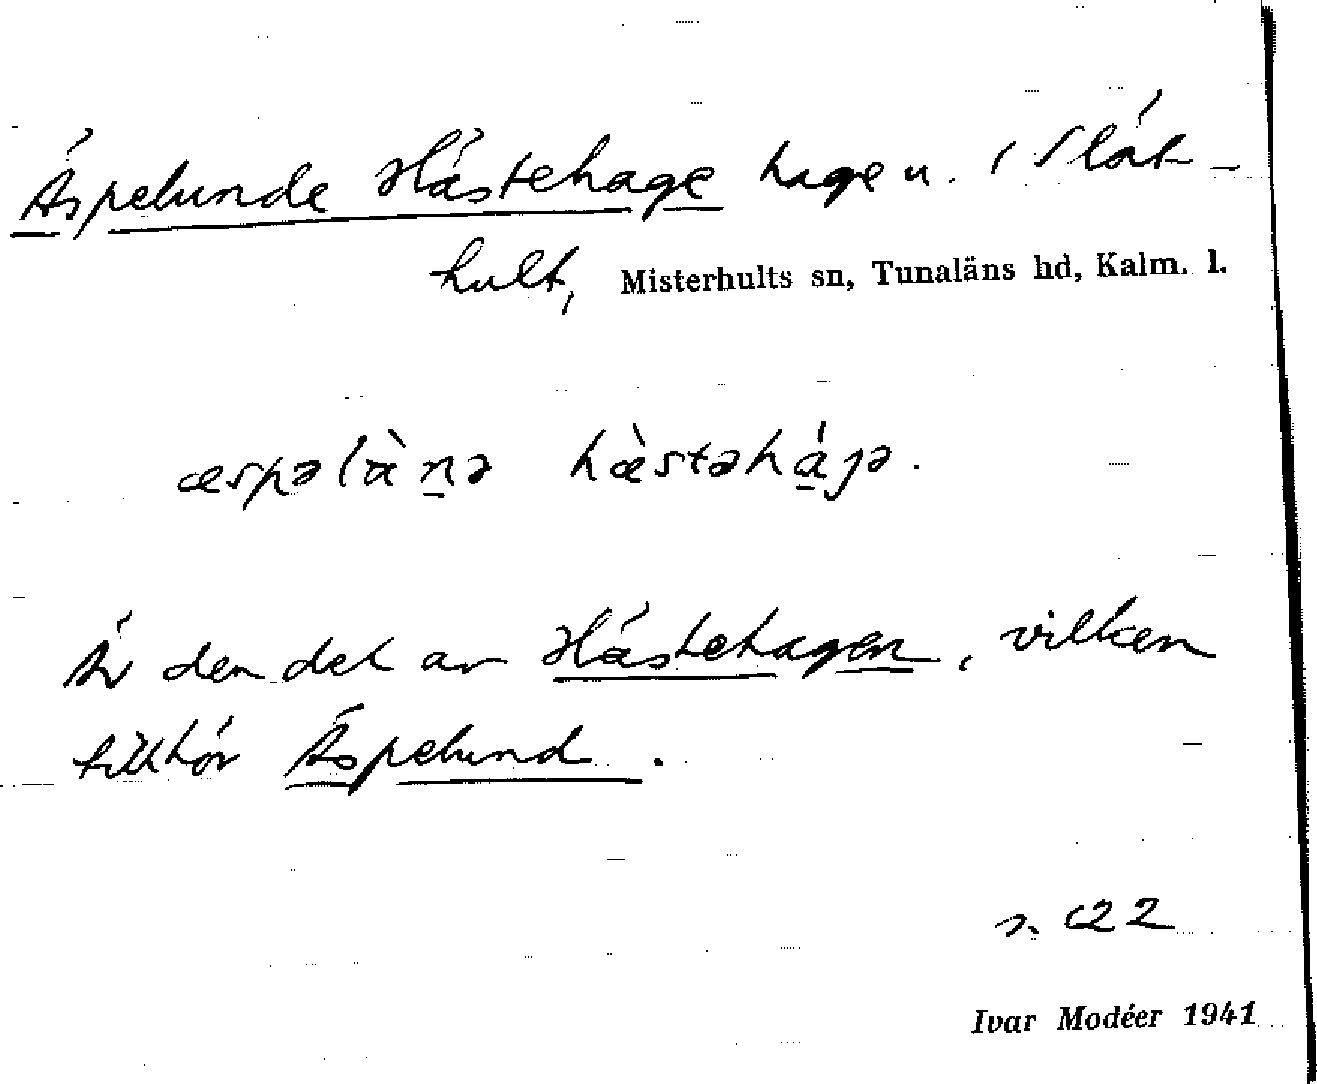 Äspelunde Hästehage hagen i Slät-
hult, Misterhults sn, Tunaläns hd, Kalm. l.
æspəlànə hæ̀stəhág̣ə.
Är den del av Hästehagen, vilken
tillhör Äspelund.
s. 122
Ivar Modéer 1941